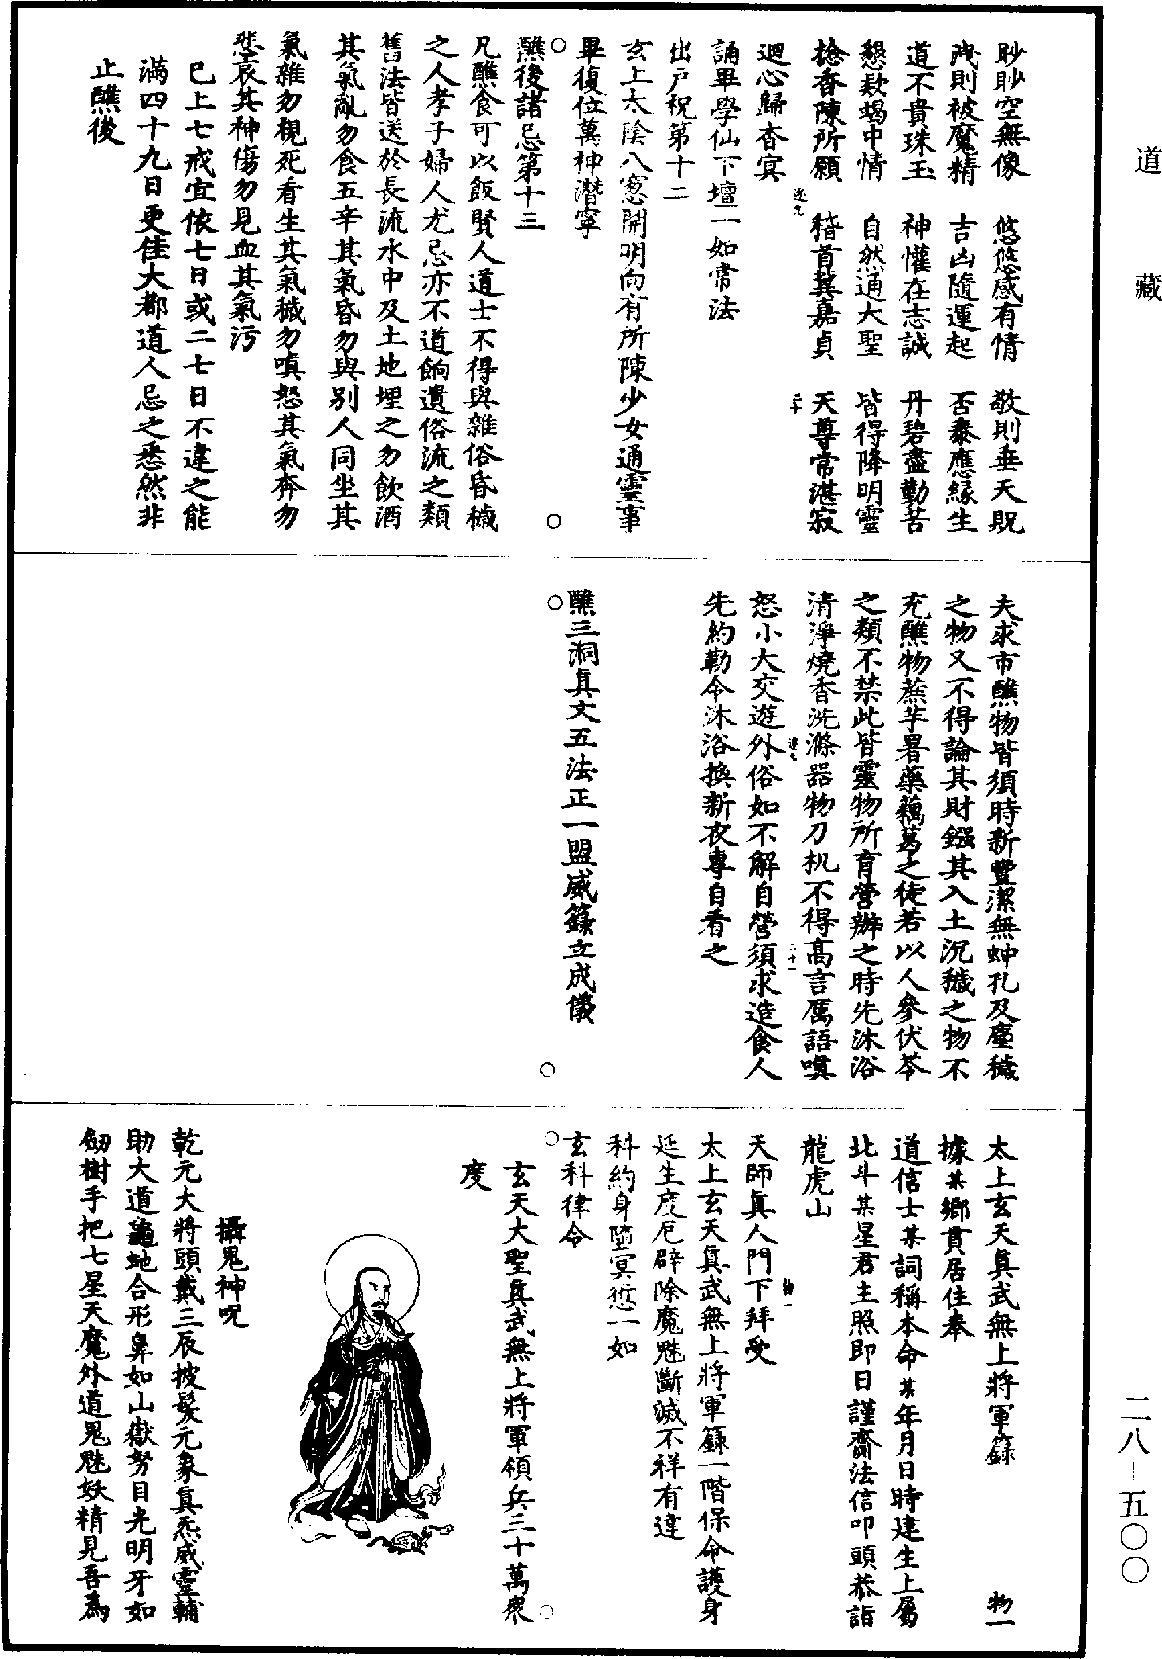 道藏
眇眇空無像　悠悠感有情　敬則垂天貺
洩則被魔精　吉凶隨運起　否泰應緣生
道不貴珠玉　神懽在志誠　丹碧盡勤苦
懇款竭中情　自然通大聖　皆得降明靈
捻香陳所願　稽首冀嘉貞　天尊常湛寂
迴心歸杳冥
誦畢學仙下壇一如常法
出戶祝第十二
玄上太陰八窻開明向有所陳少女通靈事
畢復位萬神潛寧
醮後諸忌第十三
凡醮食可以飯賢人道士不得與雜俗昏穢
之人孝子婦人尤忌亦不道餉遺俗流之類
舊法皆送於長流水中及土地埋之勿飲酒
其氣亂勿食五辛其氣昏勿與別人同坐其
氣雜勿視死看生其氣穢勿嗔怒其氣奔勿
悲哀其神傷勿見血其氣污
已上七戒宜依七日或二七日不違之能
滿四十九日更佳大都道人忌之悉然非
止醮後
夫求市醮物皆須時新豐潔無蚛孔及塵穢
之物又不得論其財錢其入土沉穢之物不
充醮物蕪芋署藥藕葛之徒若以人參伏苓
之類不禁此皆靈物所育營辦之時先沐浴
清淨燒香洗滌器物刀机不得高言厲語嗔
怒小大交遊外俗如不解自營須求造食人
先約勒令沐浴換新衣專自看之
醮三洞真文五法正一盟威籙立成儀
太上玄天真武無上將軍籙　物一
據某鄉貫居住奉
道信士某詞稱本命某年月日時建生上屬
北斗某星君主照即日謹齋法信叩頭恭詣
龍虎山
天師真人門下拜受
太上玄天真武無上將軍籙一階保命護身
延生度厄辟除魔魅斷滅不祥有違
科約身墮冥愆一如
玄科律令
玄天大聖真武無上將軍領兵三十萬眾
度
攝鬼神呪
乾元大將頭戴三辰披髮元象真炁威靈輔
助大道龜虵合形鼻如山嶽努目光明牙如
劒樹手把七星天魔外道鬼魅妖精見吾為
二八－五〇〇